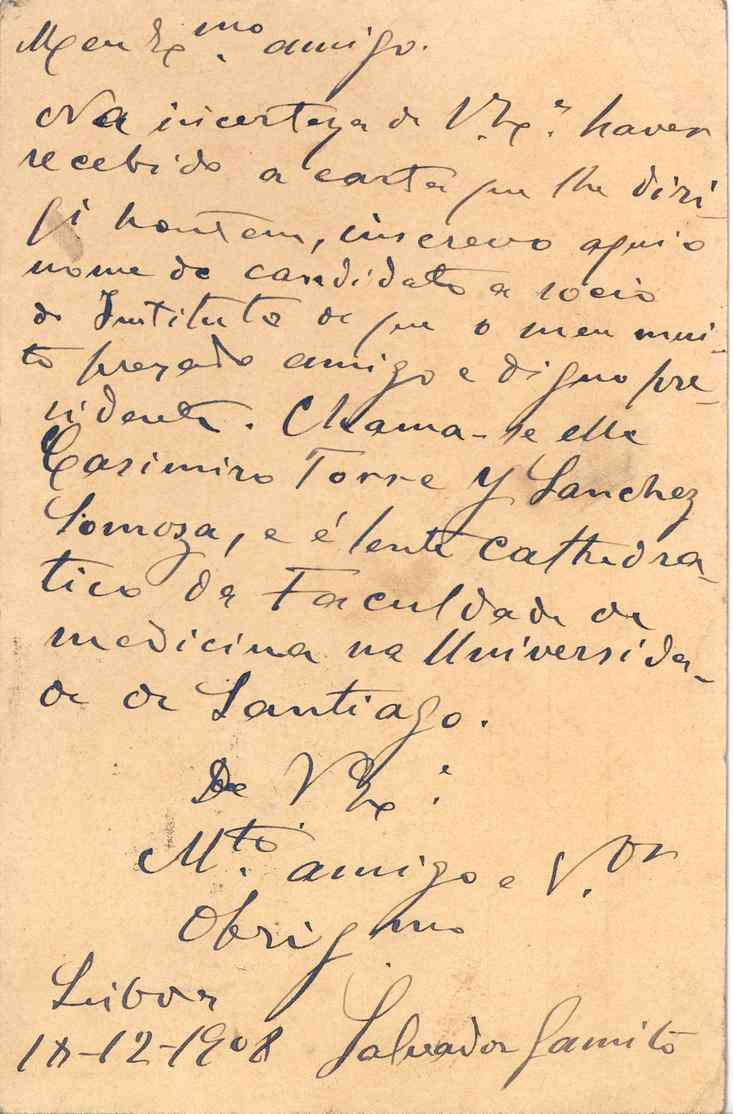 Meu Ex.mo amigo.
Na incerteza de V. Ex.ª haver
recebido a carta que lhe diri-
gi hontem, inscrevo aqui o
nome do candidato a socio
do Instituto de que o meu mui-
to prezado amigo e digno pre-
sidente. Chama-se elle
Casimiro Torre y Sanchez
Somoza, e é lente cathedra-
tico da Faculdade de
medicina na Universida-
de de Santiago.
De V Ex.ª
M.to amigo e V.or
Obrigmo
Lisboa
18-12-1908 Salvador Gamito